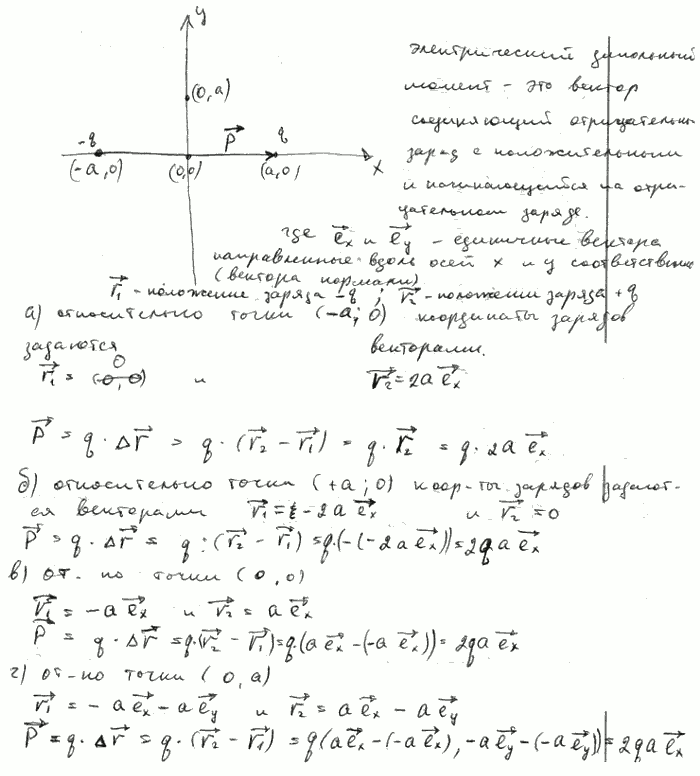 y
(0, a)
-q
q
P⃗
(-a, 0)
(0,0)
(a, 0)
x
Электрический дипольный
момент - это вектор
соединяющий отрицательн.
заряд с положительным
и начинающийся на отри-
цательном заряде.
где e⃗x и e⃗y - единичные вектора
направленные вдоль осей x и y соответственно
(вектора нормали)
r⃗1 - положение заряда -q ; r⃗2 - положении заряда +q
а) относительно точки (-a; 0) координаты зарядов
задаются векторами.
r⃗1 = 0 и r⃗2 = 2a e⃗x
P⃗ = q · Δr⃗ = q · (r⃗2 - r⃗1) = q · r⃗2 = q · 2a e⃗x
б) относительно точки (+a; 0) коор-ты зарядов задают-
ся векторами r⃗1 = -2a e⃗x и r⃗2 = 0
P⃗ = q · Δr⃗ = q · (r⃗2 - r⃗1) = q·(-(-2a e⃗x)) = 2qa e⃗x
в) от.-но точки (0, 0)
r⃗1 = -a e⃗x и r⃗2 = a e⃗x
P⃗ = q · Δr⃗ = q·(r⃗2 - r⃗1) = q·(a e⃗x - (-a e⃗x)) = 2qa e⃗x
г) от-но точки (0, a)
r⃗1 = -a e⃗x - a e⃗y и r⃗2 = a e⃗x - a e⃗y
P⃗ = q · Δr⃗ = q · (r⃗2 - r⃗1) = q(a e⃗x - (-a e⃗x), -a e⃗y - (-a e⃗y)) = 2qa e⃗x